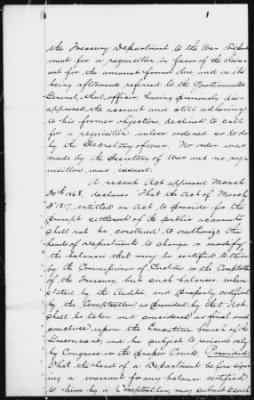 the Treasury Department to the War Depart
ment for a requisition in favor of the claim
ant for the amount found due, and on its
being afterwards referred to the Quartermaster
General, that officer having previously dis
approved the account and still adhering
to his former objection declined to call
for a requisition unless ordered so to do
by the Secretary of War. No order was
made by the Secretary of War and no req
uisition was issued.
A recent Act approved March
30th 1868, declares "That the Act of March
3d 1817, entitled an Act to provide for the
prompt settlement of the public accounts
shall not be construed to authorize the
heads of departments to change or modify
the balances that may be certified to them
by the Commissioner of Customs or the Comptrollers
of the Treasury, but such balances when
stated by the Auditor, and properly certified
by the Comptroller as provided by that Act
shall be taken and considered as final and
conclusive upon the Executive branch of the
Government, and be subject to revision only
by Congress or the proper Courts: Provided
That the head of a Department before sign
ing a warrant for any balance certified
to him by a Comptroller may submit such